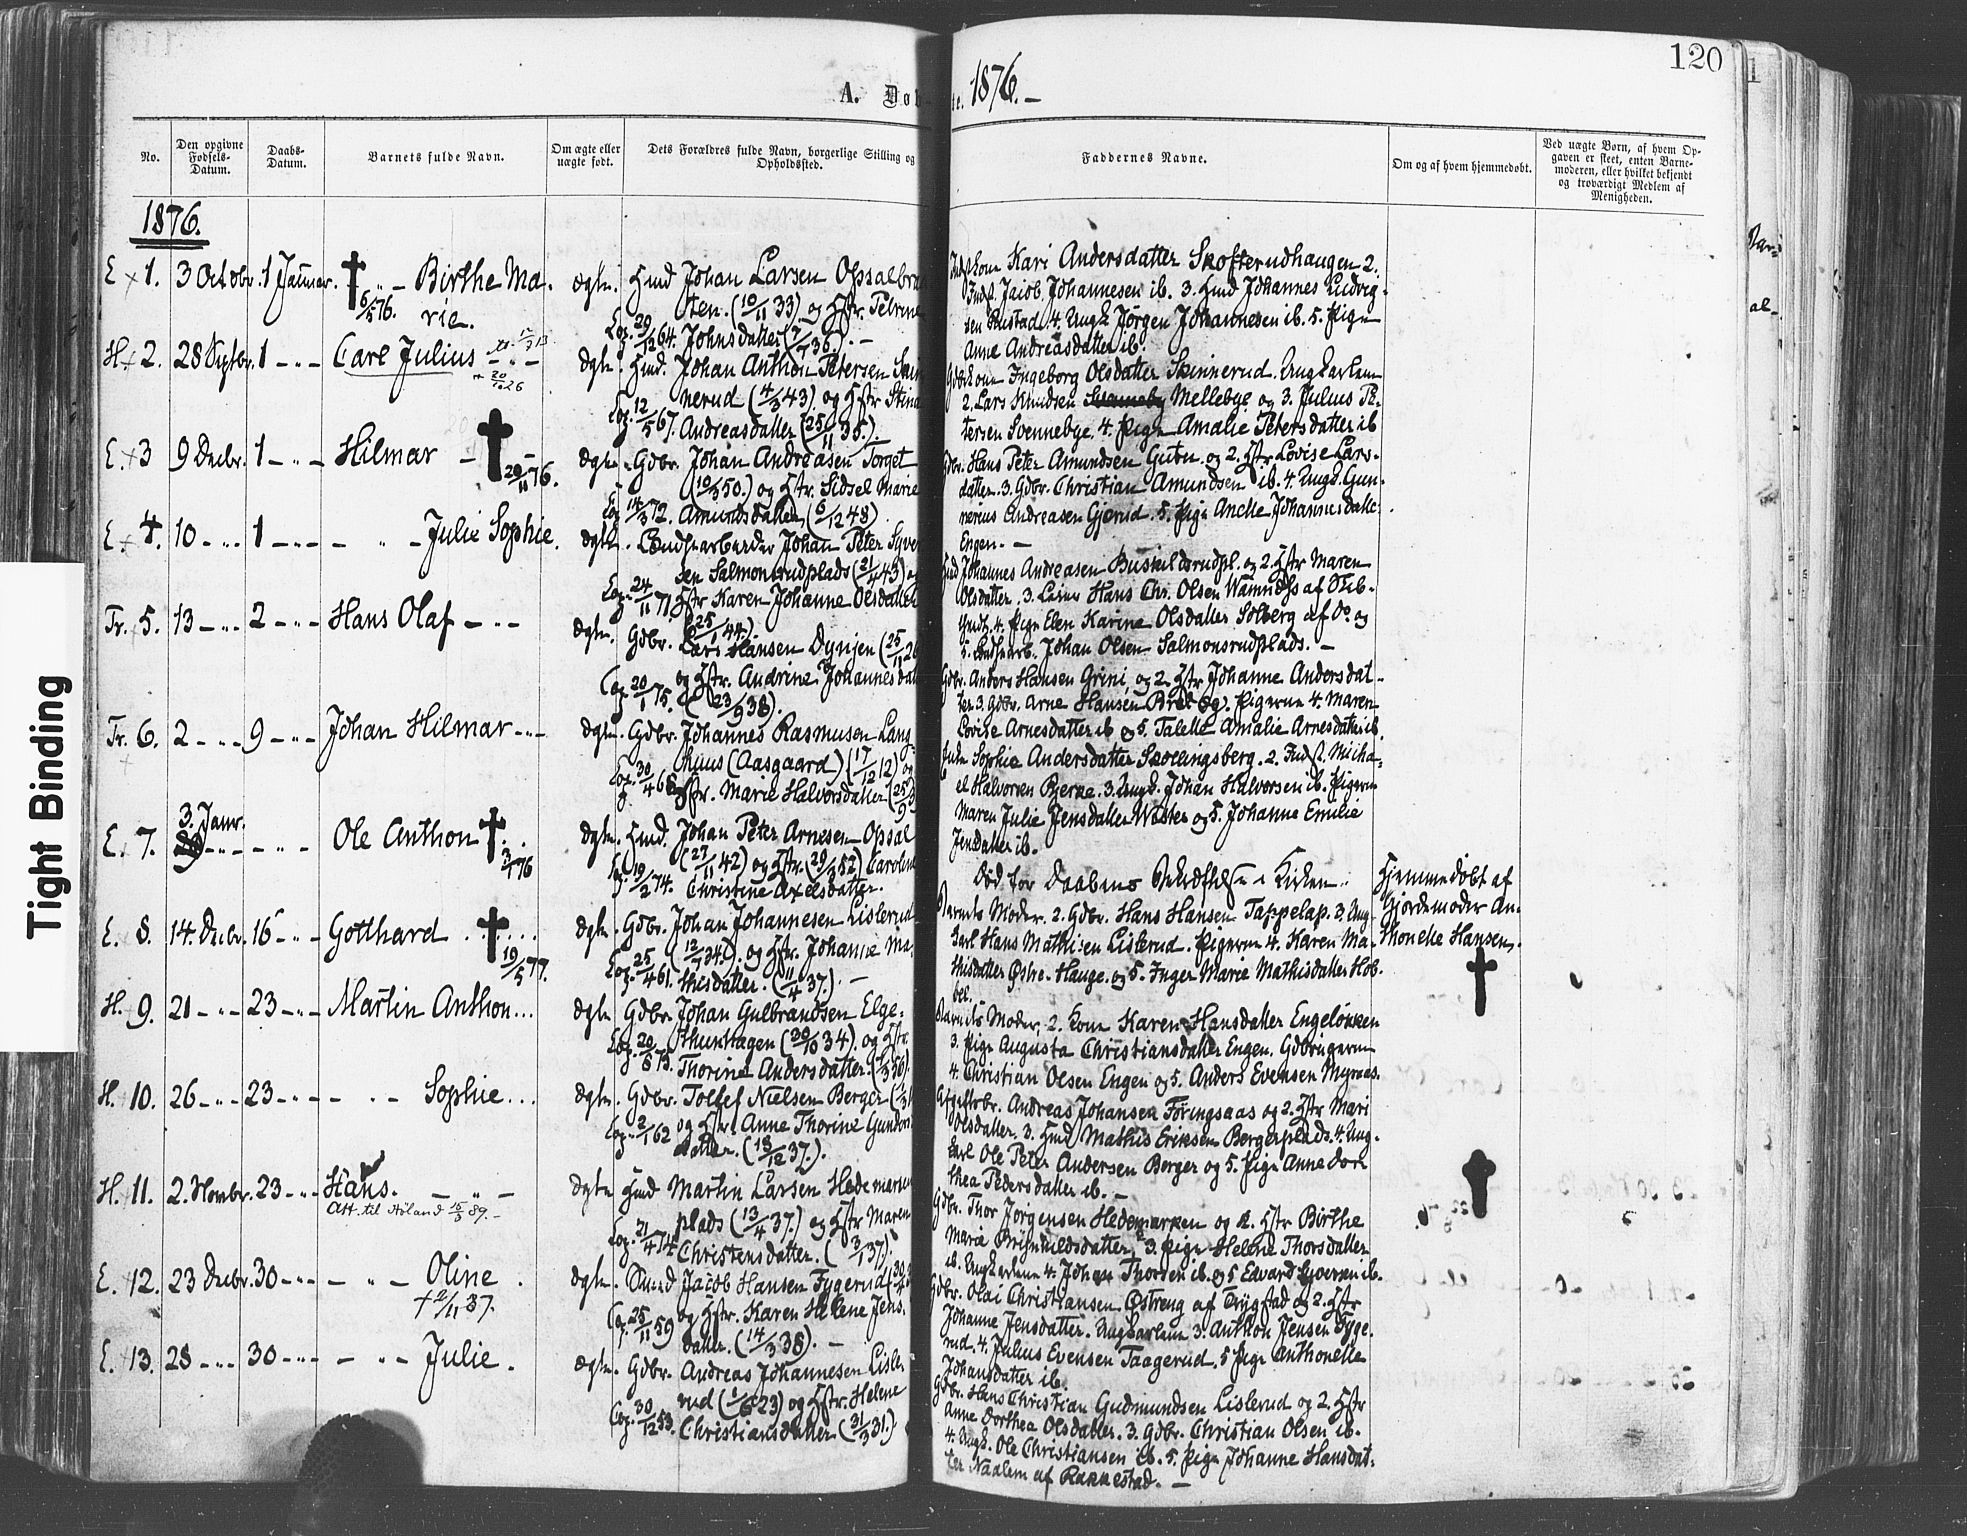 120
A. Døb
te. 1876. –
No.
Den opgivne Fødsels-Datum.
Daabs-Datum.
Barnets fulde Navn.
Om ægte eller uægte født.
Dets Forældres fulde Navn, borgerlige Stilling og Opholdssted.
Faddernes Navne.
Om og af hvem hjemmedøbt.
Ved uægte Børn, af hvem Op-
gaven er skeet, enten Barne-
moderen, eller hvilket bekjendt
og troværdigt Medlem af
Menigheden.
1876.
E. 1. 3 Octobr. 1 Januar. Birthe Ma-
rie.
ægte. Hmd Johan Larsen Opsalbra
ten. (10/11 33) og Hstr. Petrine
29/12 64. Johnsdatter (7/7 36). –
Kari Andersdatter Skofterudhaugen 2.
Indst. Jacob Johannesen ib. 3. Hmd Johannes Ludvig-
sen Rustad. 4. Ungk Jørgen Johannesen ib. 5. Pige
Anne Andreasdatter ib.
H. 2. 28 Septbr. 1 – „ – Carl Julius
ægte. Hmd. Johan Anthon Petersen Skin
nerud (4/3 43) og Hstr Stina
12/5 67. Andreasdatter (25/11 35.).
Ingeborg Olsdatter Skinnerud. Ungkarlene
2. Lars Knudsen Mellebye og 3. Julius Pe-
tersen Svennebye. 4. Pige Amalie Petersdatter ib
E. 3 9 Decbr. 1 – „ – Hilmar
ægte. Gdbr. Johan Andreasen Torget
(10/3 50.) og Hstr. Sidsel Marie
14/3 72. Amundsdatter (6/12 48)
Gdbr. Hans Peter Amundsen Gutu. og 2. Hstr Lovise Lars-
datter. 3. Gdbr. Christian Amundsen ib. 4. Ungk. Gun-
nerius Andreasen Gjerud. 5. Pige Anette Johannesdatter
Engen. –
E. 4. 10 – „ – 1 – „ – – „ – Julie Sophie.
ægte. Landhearbeider Johan Peter Syver
sen Salmonsrudplads (21/4 43) og
24/11 71. Hstr Karen Johanne Olsdatter
(25/1 44.).
Hmd Johannes Andreasen Buskildsrudpl. og 2. Hstr Maren
Olsdatter. 3. Leier Hans Chr. Olsen Wamnæs af
4. Pige Elen Karine Olsdatter Solberg af Do og
5. Johan Olsen Salmonsrudplads. –
Tr. 5. 13 – „ – 2 – „ – Hans Olaf – „ –
ægte. Gdbr. Lars Hansen Dynjen (25/11 26
og Hstr. Andrine Johannesdat
20/1 75. (23/9 38).
Gdbr. Anders Hansen Grini, og 2. Hstr Johanne Andersdat-
ter. 3. Gdbr. Arne Hansen og. Pigerne 4. Maren
Lovise Arnesdatter ib og 5. Talette Amalie Arnesdatter ib.
Tr. 6. 2 – „ – 9 – „ – Johan Hilmar – „ –
ægte. Gdbr. Johannes Rasmusen Lang-
huus (Aasgaard) (17/12 12) og
30/4 68 Hstr. Marie Halvorsdatter (25/9
Sophie Andersdatter Skollingsberg. 2. Indst. Micha-
el Halvorsen Bjerke. 3. Ungk. Johan Halvorsen ib. Pigerne
Maren Julie Jensdatter Wister og 5. Johanne Emilie
Jensdatter ib.
E. 7. 3. Janr. – „ – Ole Anthon
ægte. Hmd. Johan Peter Arnesen Opsal
(27/11 42) og Hstr. (29/3 52) Caroline
19/2 74. Christine Axelsdatter.
Død før Daabens Bekræftelse i Kirken.
Hjemmedøbt af
Gjordemoder An-
thonette Hansen.
E. 8. 14. Decbr. 16 – „ – Gotthard
19/5 77.
ægte. Gdbr. Johan Johannesen Lislerud
(12/7 34.). og Hstr. Johanne Ma-
25/4 61. thisdatter. (11/4 37.). –
Barnets Moder. 2. Gdbr. Hans Hansen Tappelap. 3. Ung-
karl Hans Mathisen Lislerud. Pigerne 4. Karen Ma-
thisdatter Østre-Hauge. og 5. Inger Marie Mathisdatter Hob-
bel.
H. 9. 21 – „ – 23 – „ – Martin Anthon
ægte Gdbr Johan Gulbrandsen Elge-
thunhagen (30/10 34). og Hstr.
20/6 73. Thorine Andersdatter.
Barnets Moder. 2. Kone Karen Hansdatter Engeløkken
3. Pige Augusta Christiansdatter Engen. Gdbrugerne
4. Christian Olsen Engen og 5. Anders Evensen Myraas.
H. 10. 26 – „ – 23 – „ – – „ – Sophie
ægte. Gdbr. Tollef Nielsen Berger
2/1 62 og Hstr. Anne Thorine Gunders
datter. (13/12 37.).
Andreas Johansen Føringsaas og 2. Hstr Mari
Olsdatter. 3. Hmd Mathis Eriksen Bergerplads. 4. Ung-
karl Ole Peter Andersen Berger og 5. Pige Anne Doro
thea Pedersdatter ib. –
H. 11. 2. Novembr. 23 – „ – Hans. – „ –
Att. til Høland 15/3 89. –
ægte Hmd Martin Larsen Hedemarken
plads (13/4 37.) og Hstr Maren
21/4 74 Christensdatter. (3/1 37.).
Gdbr. Thor Jørgensen Hedemarken og 2. Hstr Birthe
Marie Brynhildsdatter, 3. Pige Helene Thorsdatter
ib. Ungkarlene 4. Johan Thorsen ib. og 5 Edvard Syversen ib.
E. 12. 23 Decbr. 30 – „ – – „ – Oline
† 2/11 37.
ægte. Jacob Hansen Fygerud
25/11 59 og Hstr. Karen Helene Jens-
datter. (14/3 38). –
Gdbr. Olai Christiansen Østreng af Trygstad og 2. Hstr
Johanne Jensdatter. Ungkarlene 3. Anthon Jensen Fyge-
rud. 4. Julius Evensen Taagerud. 5 Pige Anthonette
Johansdatter ib.
E. 13. 28 – „ – 30 – „ – – „ – Julie.
ægte. Gdbr. Andreas Johannesen Lisle-
rud (1/6 23) og Hstr. Helene
30/12 53. Christiansdatter (31/3 31.)
Gdbr. Hans Christian Gudmundsen Lislerud og 2. Hstr
Anne Dorthea Olsdatter. 3. Gdbr. Christian Olsen ib.
4. Ungk. Ole Christiansen ib. 5. Pige Johanne Hansdat-
ter Naalem af Rakkestad. –
Tight Binding